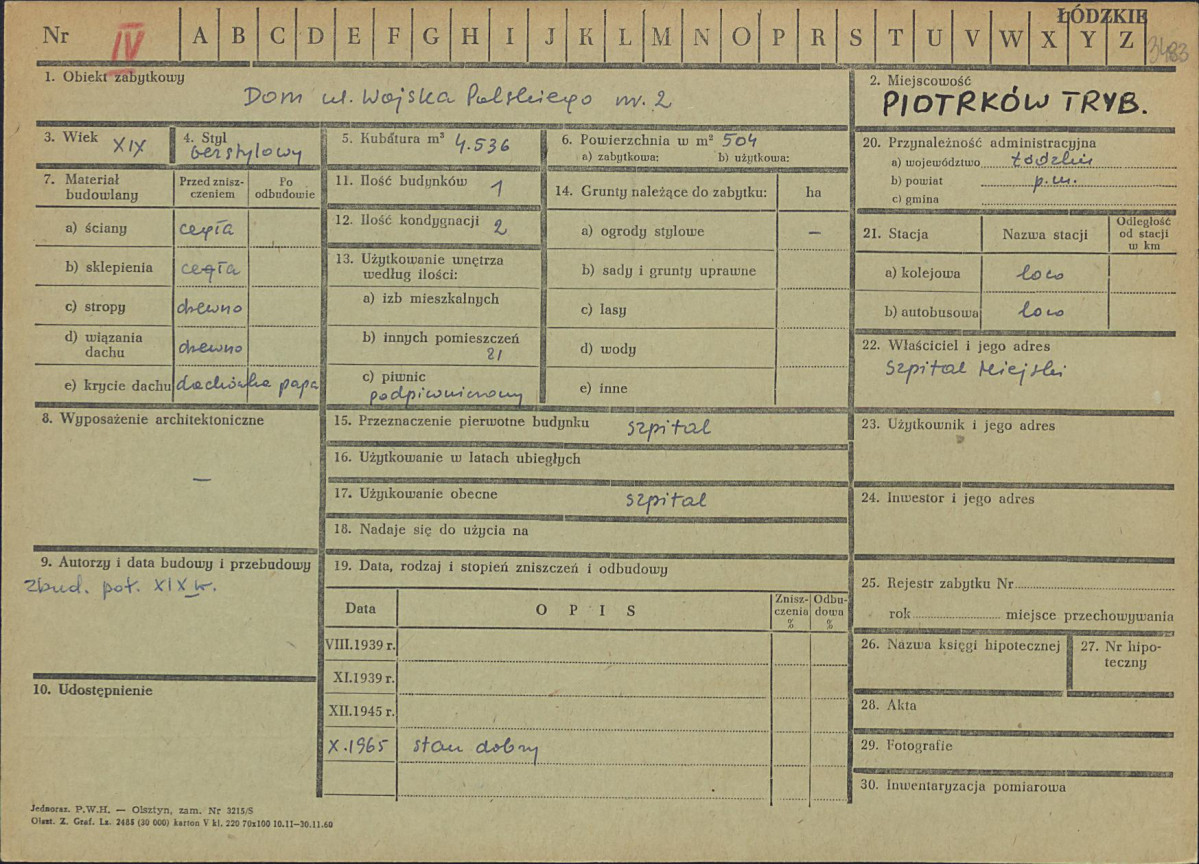 ŁÓDZKIE
Nr IV A B C D E F G H I J K L M N O P R S T U V W X Y Z 3483
1. Obiekt zabytkowy
Dom ul. Wojska Polskiego nr. 2
2. Miejscowość
PIOTRKÓW TRYB.
3. Wiek XIX
4. Styl
bezstylowy
5. Kubatura m³ 4.536
6. Powierzchnia w m² 504
a) zabytkowa: b) użytkowa:
7. Materiał budowlany
Przed zniszczeniem
Po odbudowie
a) ściany cegła
b) sklepienia cegła
c) stropy drewno
d) wiązania dachu drewno
e) krycie dachu dachówka papa
8. Wyposażenie architektoniczne
—
9. Autorzy i data budowy i przebudowy
zbud. poł. XIX w.
10. Udostępnienie
11. Ilość budynków 1
12. Ilość kondygnacji 2
13. Użytkowanie wnętrza
według ilości:
a) izb mieszkalnych
b) innych pomieszczeń
21
c) piwnic
podpiwniczony
14. Grunty należące do zabytku: ha
a) ogrody stylowe —
b) sady i grunty uprawne
c) lasy
d) wody
e) inne
15. Przeznaczenie pierwotne budynku szpital
16. Użytkowanie w latach ubiegłych
17. Użytkowanie obecne szpital
18. Nadaje się do użycia na
19. Data, rodzaj i stopień zniszczeń i odbudowy
Data OPIS Zniszczenia % Odbudowa %
VIII.1939 r.
XI.1939 r.
XII.1945 r.
X.1965 stan dobry
20. Przynależność administracyjna
a) województwo Łódzkie
b) powiat p.m.
c) gmina
21. Stacja Nazwa stacji Odległość od stacji w km
a) kolejowa loco
b) autobusowa loco
22. Właściciel i jego adres
Szpital Miejski
23. Użytkownik i jego adres
24. Inwestor i jego adres
25. Rejestr zabytku Nr
rok miejsce przechowywania
26. Nazwa księgi hipotecznej
27. Nr hipoteczny
28. Akta
29. Fotografie
30. Inwentaryzacja pomiarowa
Jednoraz. P.W.H. — Olsztyn, zam. Nr 3215/S
Olszt. Z. Graf. Lz. 2485 (30 000) karton V kl. 220 70x100 10.11—30.11.60